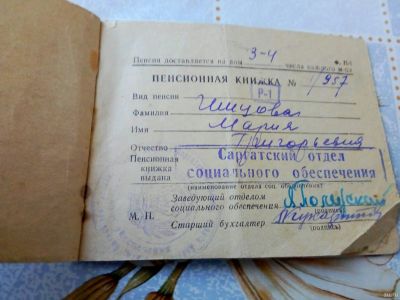 Пенсия доставляется на дом 3-4 Ф. №1
числа каждого м-ца
ПЕНСИОННАЯ КНИЖКА № 1957
Р-1
Вид пенсии
Фамилия
Имя Мария
Отчество Григорьевна
Пенсионная книжка выдана
Саргатский отдел
социального обеспечения
(наименование отдела соц. обеспечения)
Заведующий отделом
социального обеспечения
(подпись)
М. П.
Старший бухгалтер
(подпись)